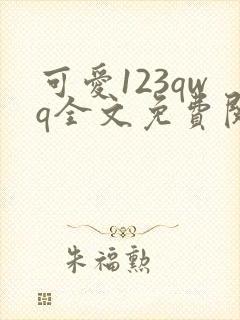 可愛123qw
q全文免費閱
朱福勲